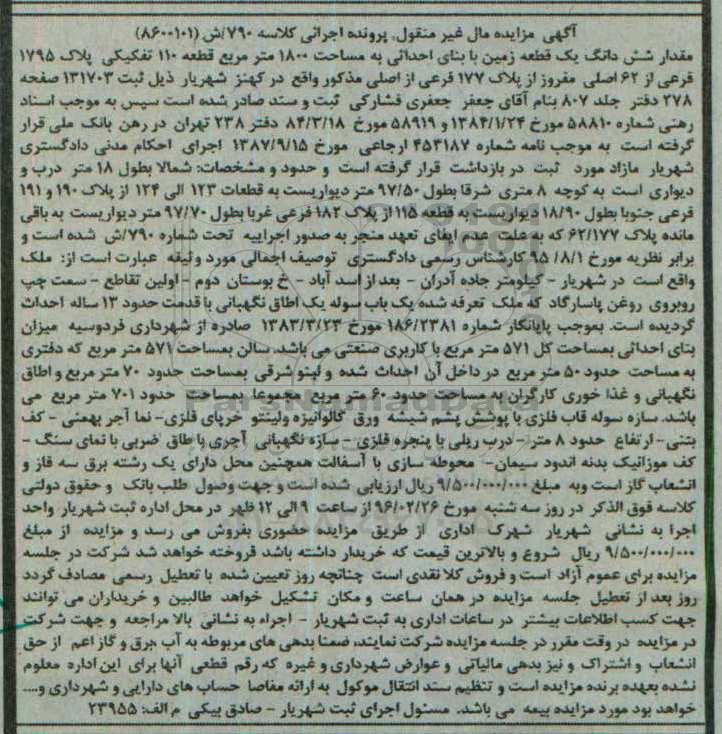 آگهی مزایده مال غیر منقول، پرونده اجرائی کلاسه ۷۹۰/ش (۸۶۰۰۱۰۱)
مقدار شش دانگ یک قطعه زمین با بنای احداثی به مساحت ۱۸۰۰ متر مربع قطعه ۱۱۰ تفکیکی پلاک ۱۷۹۵
فرعی از ۶۲ اصلی مفروز از پلاک ۱۷۷ فرعی از اصلی مذکور واقع در کهنز شهریار ذیل ثبت ۱۳۱۷۰۳ صفحه
۲۷۸ دفتر جلد ۸۰۷ بنام آقای جعفر جعفری فشارکی ثبت و سند صادر شده است سپس به موجب اسناد
رهنی شماره ۵۸۸۱۰ مورخ ۱۳۸۴/۱/۲۴ و ۵۸۹۱۹ مورخ ۸۴/۳/۱۸ دفتر ۲۳۸ تهران در رهن بانک ملی قرار
گرفته است به موجب نامه شماره ۴۵۳۱۸۷ ارجاعی مورخ ۱۳۸۷/۹/۱۵ اجرای احکام مدنی دادگستری
شهریار مازاد مورد ثبت در بازداشت قرار گرفته است و حدود و مشخصات: شمالا بطول ۱۸ متر درب و
دیواری است به کوچه ۸ متری شرقا بطول ۹۷/۵۰ متر دیواریست به قطعات ۱۲۳ الی ۱۲۴ از پلاک ۱۹۰ و ۱۹۱
فرعی جنوبا بطول ۱۸/۹۰ دیواریست به قطعه ۱۱۵ از پلاک ۱۸۲ فرعی غربا بطول ۹۷/۷۰ متر دیواریست به باقی
مانده پلاک ۶۲/۱۷۷ که به علت عدم ایفای تعهد منجر به صدور اجراییه تحت شماره ۷۹۰/ش شده است و
برابر نظریه مورخ ۹۵/۸/۱ کارشناس رسمی دادگستری توصیف اجمالی مورد وثیقه عبارت است از: ملک
واقع است در شهریار - کیلومتر جاده آدران - بعد از اسد آباد - خ بوستان دوم - اولین تقاطع - سمت چپ
روبروی روغن پاسارگاد که ملک تعرفه شده یک باب سوله یک اطاق نگهبانی با قدمت حدود ۱۳ ساله احداث
گردیده است. بموجب پایانکار شماره ۱۸۶/۲۳۸۱ مورخ ۱۳۸۳/۳/۲۳ صادره از شهرداری فردوسیه میزان
بنای احداثی بمساحت کل ۵۷۱ متر مربع با کاربری صنعتی می باشد. سالن بمساحت ۵۷۱ متر مربع که دفتری
به مساحت حدود ۵۰ متر مربع در داخل آن احداث شده و لینو شرقی بمساحت حدود ۷۰ متر مربع و اطاق
نگهبانی و غذا خوری کارگران به مساحت حدود ۶۰ متر مربع مجموعا بمساحت حدود ۷۰۱ متر مربع می
باشد. سازه سوله قاب فلزی با پوشش پشم شیشه ورق گالوانیزه ولینتو خرپای فلزی- نما آجر بهمنی - کف
بتنی- ارتفاع حدود ۸ متر - درب ریلی با پنجره فلزی - سازه نگهبانی آجری با طاق ضربی با نمای سنگ -
کف موزائیک بدنه اندود سیمان- محوطه سازی با آسفالت همچنین محل دارای یک رشته برق سه فاز و
انشعاب گاز است وبه مبلغ ۹/۵۰۰/۰۰۰/۰۰۰ ریال ارزیابی شده است و جهت وصول طلب بانک و حقوق دولتی
کلاسه فوق الذکر در روز سه شنبه مورخ ۹۶/۰۲/۲۶ از ساعت ۹ الی ۱۲ ظهر در محل اداره ثبت شهریار واحد
اجرا به نشانی شهریار شهرک اداری از طریق مزایده حضوری بفروش می رسد و مزایده از مبلغ
۹/۵۰۰/۰۰۰/۰۰۰ ریال شروع و بالاترین قیمت که خریدار داشته باشد فروخته خواهد شد شرکت در جلسه
مزایده برای عموم آزاد است و فروش کلا نقدی است چنانچه روز تعیین شده با تعطیل رسمی مصادف گردد
روز بعد از تعطیل جلسه مزایده در همان ساعت و مکان تشکیل خواهد طالبین و خریداران می توانند
جهت کسب اطلاعات بیشتر در ساعات اداری به ثبت شهریار - اجراء به نشانی بالا مراجعه و جهت شرکت
در مزایده در وقت مقرر در جلسه مزایده شرکت نمایند، ضمنا بدهی های مربوطه به آب ،برق و گاز اعم از حق
انشعاب و اشتراک و نیز بدهی مالیاتی و عوارض شهرداری و غیره که رقم قطعی آنها برای این اداره معلوم
نشده بعهده برنده مزایده است و تنظیم سند انتقال موکول به ارائه مفاصا حساب های دارایی و شهرداری و....
خواهد بود مورد مزایده بیمه می باشد. مسئول اجرای ثبت شهریار - صادق بیکی م الف: ۲۳۹۵۵